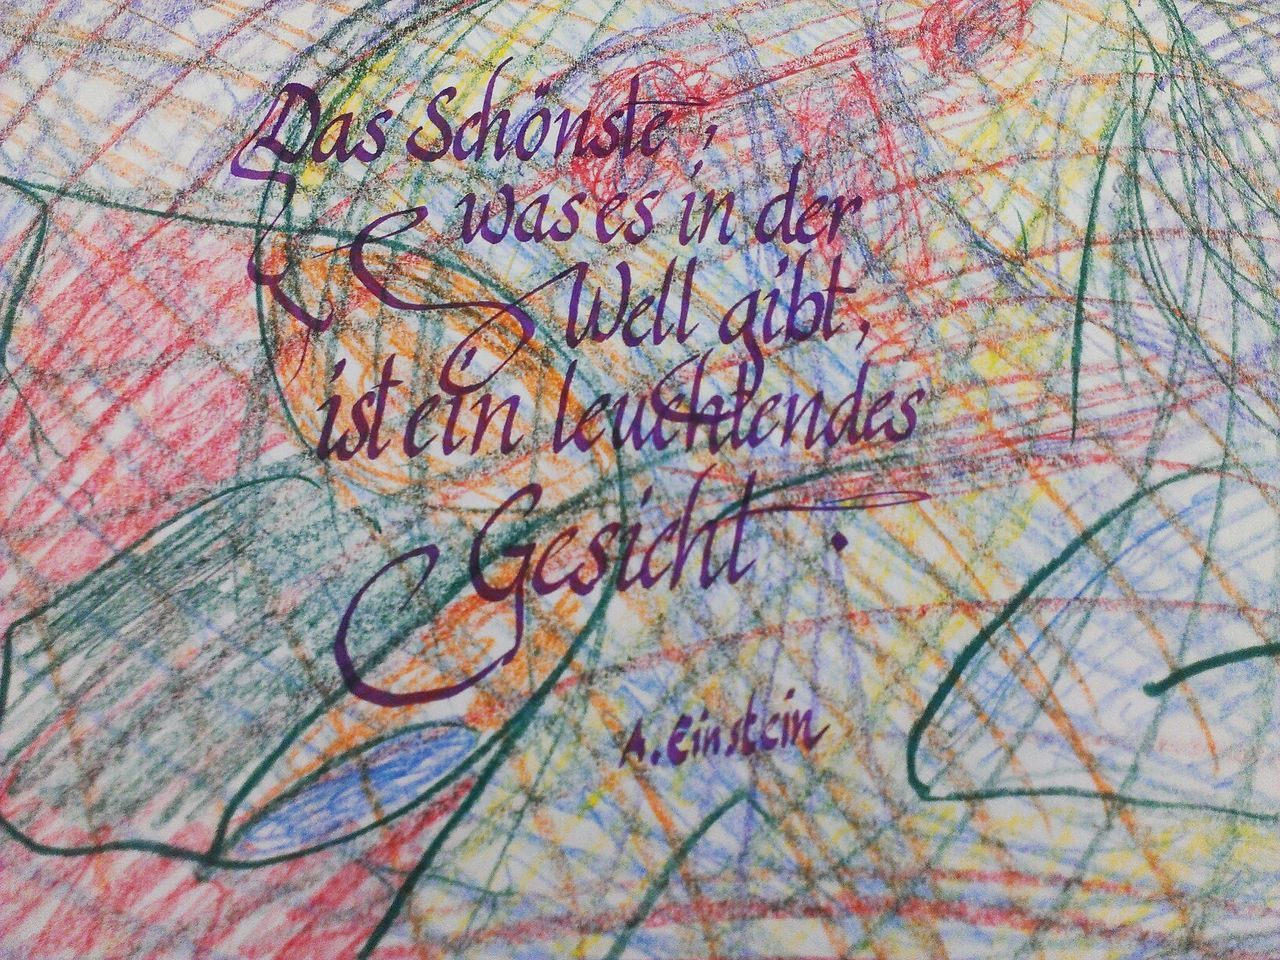 Das Schönste,
was es in der
Well gibt,
ist ein leuchtendes
Gesicht.
A. Einstein